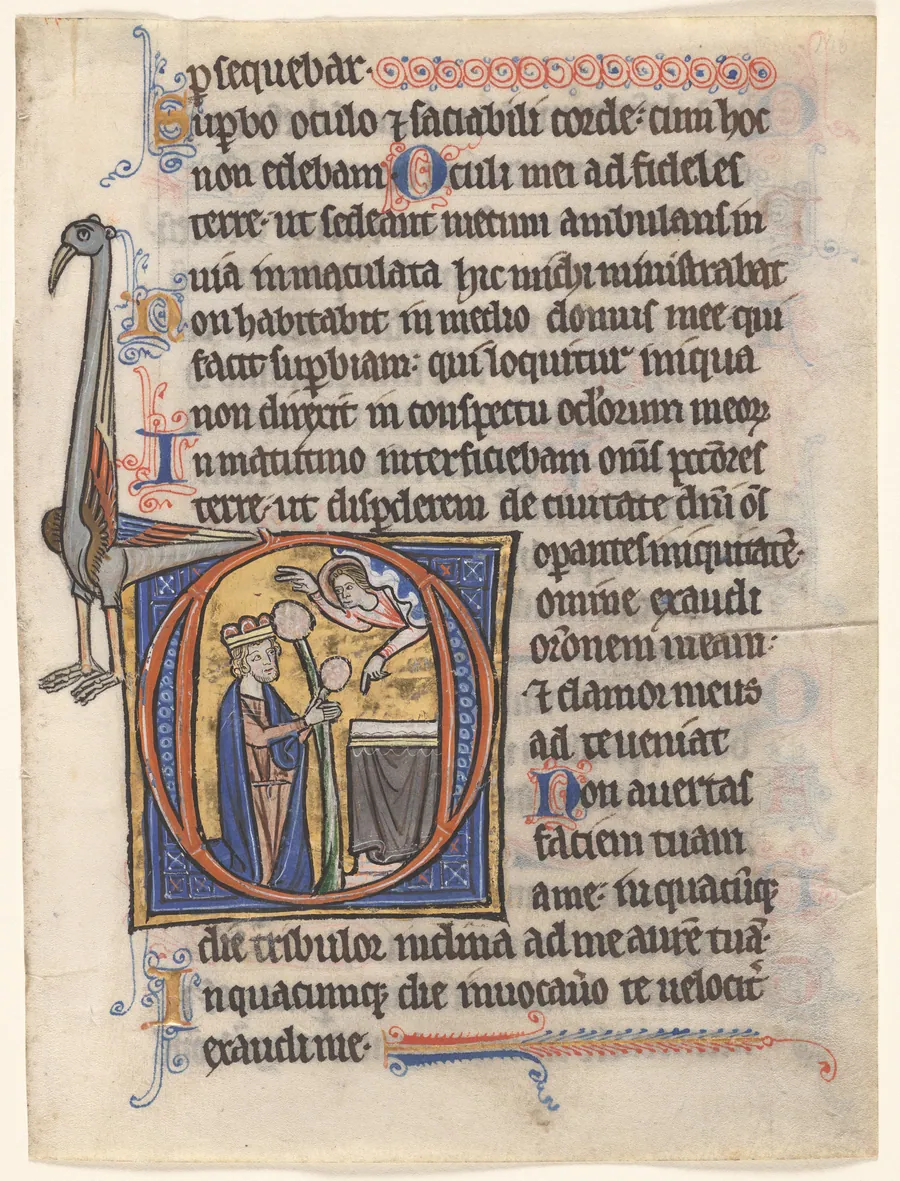 ꝑsequebar.
Suꝑbo oculo ⁊ saciabili corde: cum hoc
non edebam. Oculi mei ad fideles
terre: ut sedeant mecum ambulans in
uia inmaculata hic michi ministrabat
Non habitabit in medio domus mee qui
facit suꝑbiam: qui loquitur iniqua
non direxit in conspectu oc̄lorum meoꝝ
In matutino interficiebam om̄s pc̄cores
terre: ut disꝑderem de ciuitate dn̄i om̄s
oꝑantes iniquitatē.
Domine exaudi
or̄onem meam:
⁊ clamor meus
ad te ueniat
Non auertas
faciem tuam
a me: in quacūqꝫ
die tribulor inclina ad me aurē tuā.
In quacumqꝫ die inuocau̅o te uelocit̉
exaudi me.